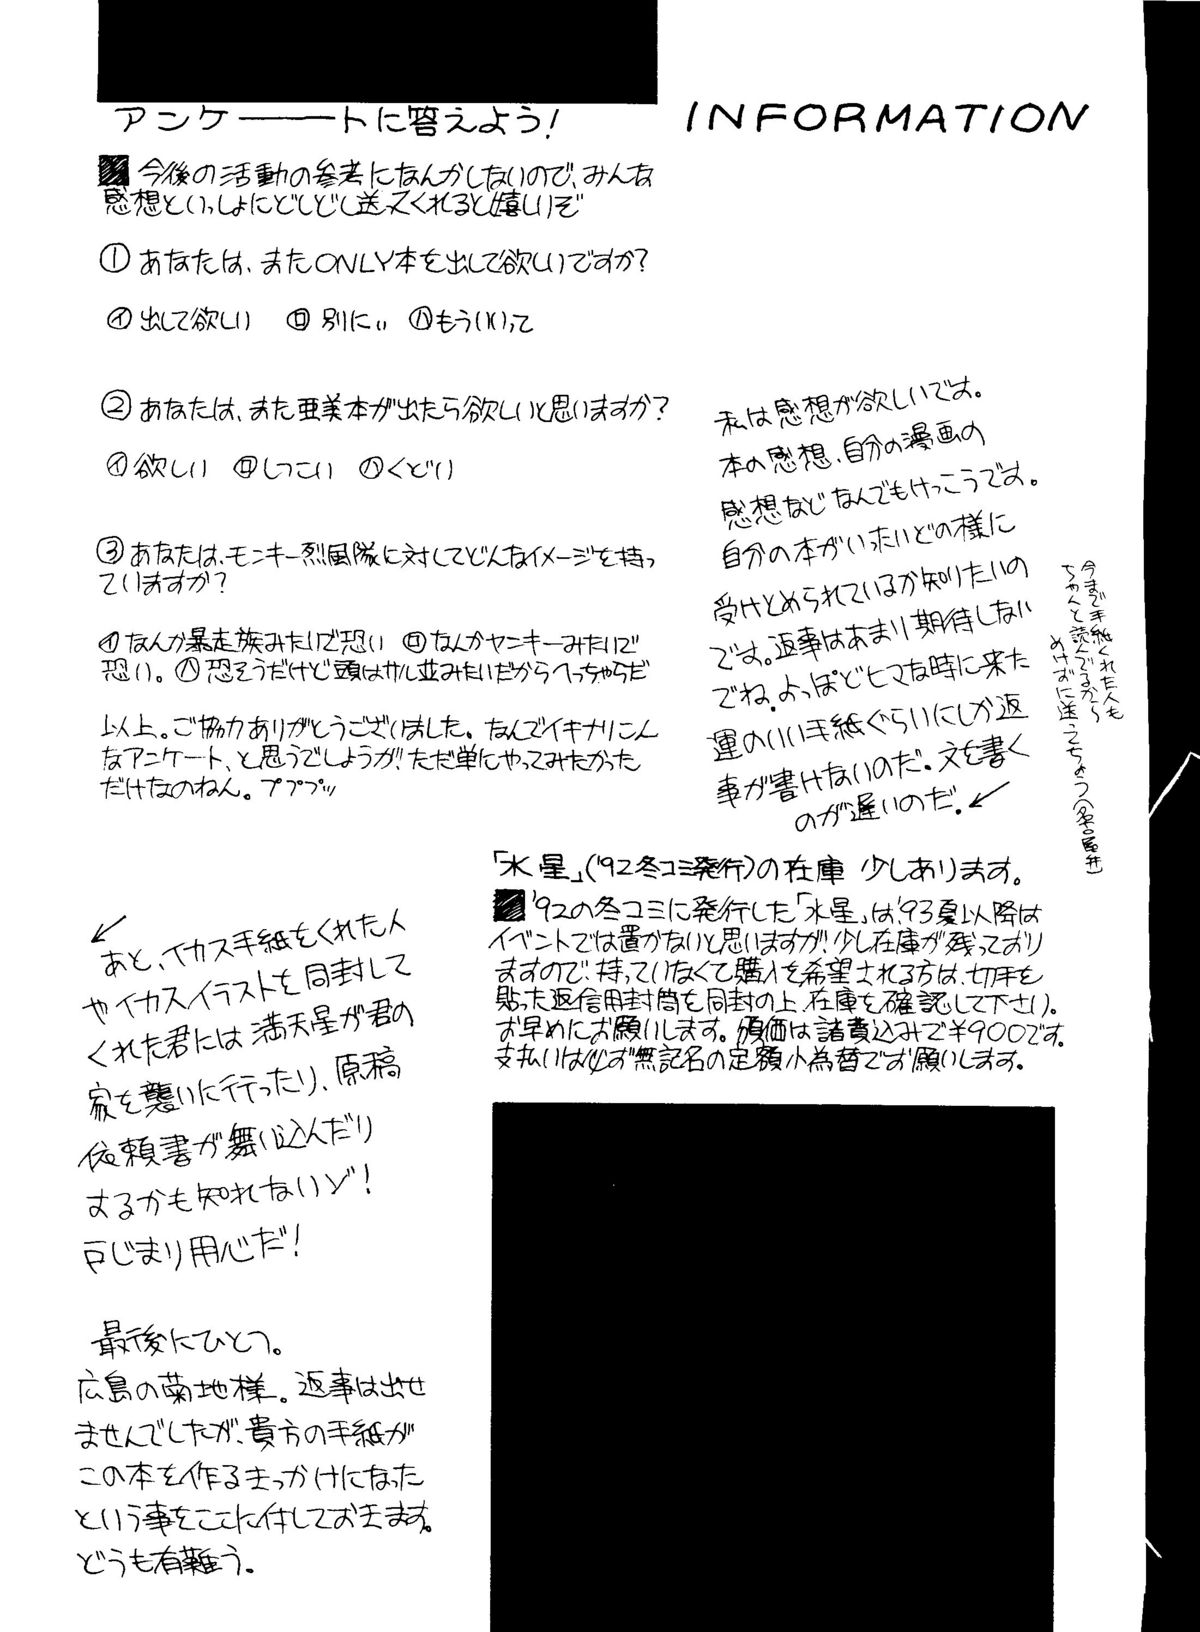 アンケートに答えよう!
今後の活動の参考になんかしないので、みんな
感想といっしょにどしどし送ってくれると嬉しいぞ
①あなたは、またONLY本を出して欲しいですか?
㋑出して欲しい ㋺別にぃ ㋩もういいって
②あなたは、また亜美本が出たら欲しいと思いますか?
㋑欲しい ㋺しつこい ㋩くどい
③あなたは、モンキー烈風隊に対してどんなイメージを持っ
ていますか?
㋑なんか暴走族みたいで恐い ㋺なんかヤンキーみたいで
恐い。㋩恐そうだけど頭はサル並みたいだからへっちゃらだ
以上。ご協力ありがとうございました。なんでイキナリこん
なアンケート、と思うでしょうが、ただ単にやってみたかった
だけなのねん。プププッ
INFORMATION
私は感想が欲しいです。
本の感想、自分の漫画の
感想などなんでもけっこうです。
自分の本がいったいどの様に
受けとめられているか知りたいの
です。返事はあまり期待しない
でね。よっぽどヒマな時に来た
運のいい手紙ぐらいにしか返
事が書けないのだ。文を書く
のが遅いのだ。
今まで手紙くれた人も
ちゃんと読んでるから
めげずに送ってちょう(名古屋弁)
「水星」('92冬コミ発行)の在庫 少しあります。
'92の冬コミに発行した「水星」は、'93夏以降は
イベントでは置かないと思いますが、少し在庫が残っており
ますので、持っていなくて購入を希望される方は、切手を
貼った返信用封筒を同封の上、在庫を確認して下さい。
お早めにお願いします。頒価は諸費込みで¥900です。
支払いは必ず無記名の定額小為替でお願いします。
あと、イカス手紙をくれた人
やイカスイラストを同封して
くれた君には満天星が君の
家を襲いに行ったり、原稿
依頼書が舞い込んだり
するかも知れないゾ!
戸じまり用心だ!
最後にひとつ。
広島の菊地様。返事は出せ
ませんでしたが、貴方の手紙が
この本を作るきっかけになった
という事をここに付しておきます。
どうも有難う。